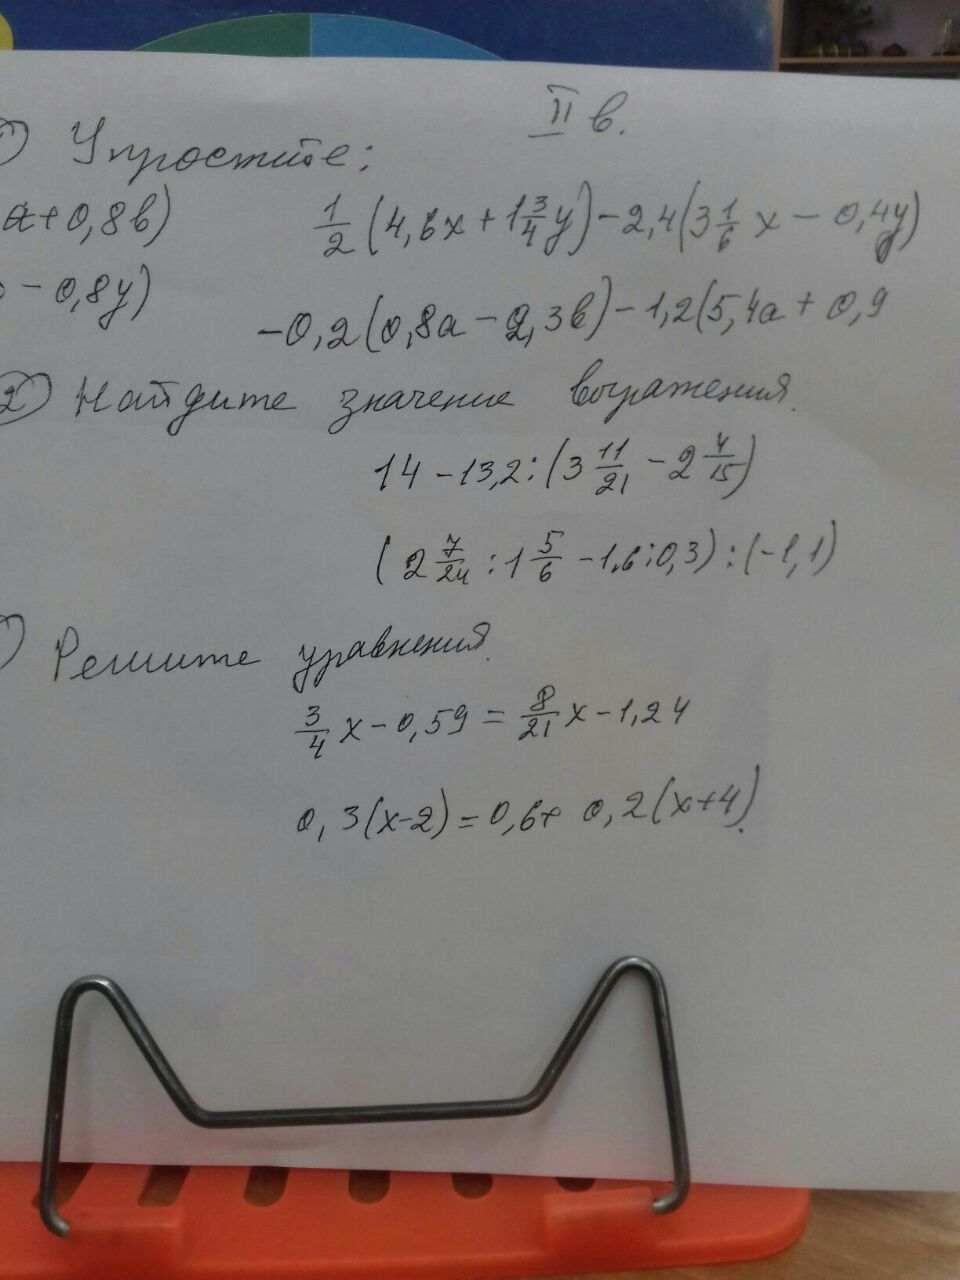 II в.
1) Упростите:
а+0,8в) 1/2 (4,6х + 1 3/4 у) - 2,4(3 1/6 х - 0,4у)
- 0,8у) -0,2(0,8а - 2,3в) - 1,2(5,4а + 0,9
2) Найдите значение выражения.
14 - 13,2 : (3 11/21 - 2 4/15)
(2 7/24 : 1 5/6 - 1,6 : 0,3) : (-1,1)
Решите уравнения.
3/4 х - 0,59 = 8/21 х - 1,24
0,3(х-2) = 0,6+ 0,2(х+4).